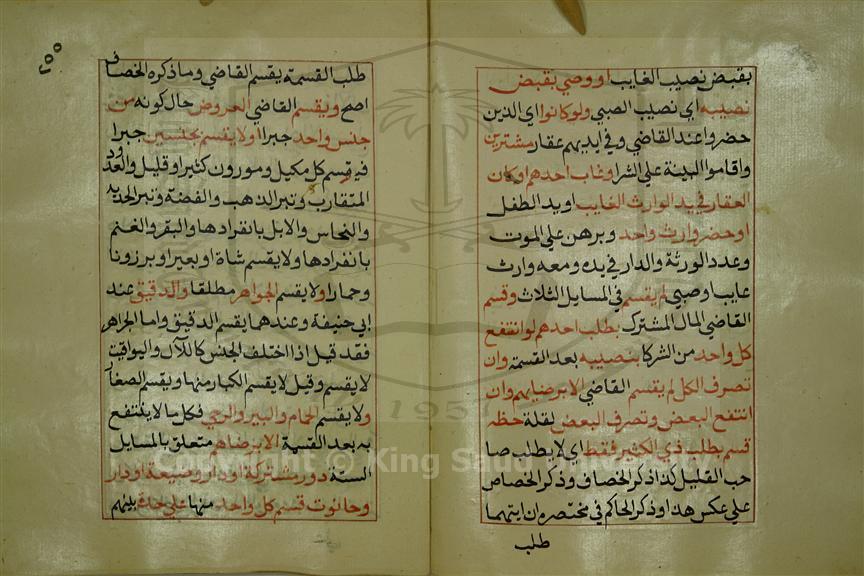 بقبض نصيب الغايب او وصي يقبض
نصيبه اي نصيب الصبي ولو كانوا اي الذين
حضروا عند القاضي وفي ايديهم عقار مشترين
واقاموا البينة علي الشرا وغاب احدهم او كان
العقار في يد الوارث الغايب او يد الطفل
او حضر وارث واحد وبرهن علي الموت
وعدد الورثة والدار في يده ومعه وارث
غايب او صبي لم يقسم في المسايل الثلاث وقسم
القاضي المال المشترك بطلب احدهم لو انتفع
كل واحد من الشركا بنصيبه بعد القسمة وان
تصرف الكل لم يقسم القاضي الا برضايهم وان
انتفع البعض وتصرف البعض لقلة حظه
قسم بطلب ذي الكثير فقط اي لا يطلب صا
حب القليل كذا ذكر الخصاف وذكر الخصاص
علي عكس هذا وذكر الحاكم في مختصره ان ايتهما
طلب
٢٥٥
طلب القسمة يقسم القاضي وما ذكره الخصاف
اصح ويقسم القاضي العروض حال كونه من
جنس واحد جبرا او لا يقسم بجنسين جبرا
فيقسم كل مكيل وموزون كثير او قليل والعدد
المتقارب وتبر الذهب والفضة وتبر الحديد
والنحاس والابل بانفرادها والبقر والغنم
بانفرادها ولا يقسم شاة او بعيرا وبرزونا
وحمارا ولا يقسم الجواهر مطلقا والدقيق عند
ابي حنيفة وعندهما يقسم الدقيق واما الجواهر
فقد قيل اذا اختلف الجنس كاللآل واليواقيت
لا يقسم وقيل لا يقسم الكبار منها ويقسم الصغار
ولا يقسم الحمام والبير والرحي فكل ما لا ينتفع
به بعد القسمة الا برضاهم متعلق بالمسايل
الستة دور مشتركة او دار وضيعة او دار
وحانوت قسم كل واحد منها علي حدة بينهم
Copyright © King Saud
1957